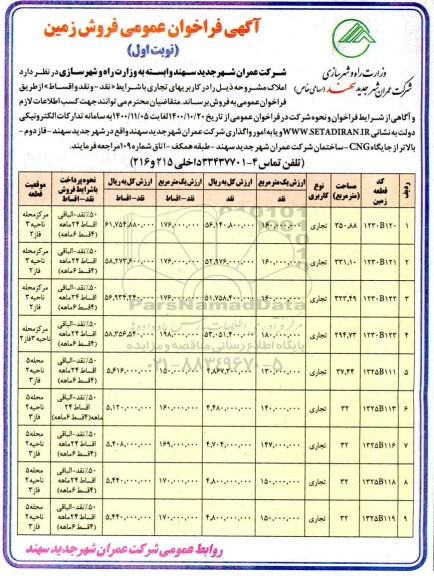 آگهی فراخوان عمومی فروش زمین
(نوبت اول)
وزارت راه و شهرسازی
شرکت عمران شهر جدید سهند (سهامی خاص)
شرکت عمران شهر جدید سهند وابسته به وزارت راه و شهرسازی در نظر دارد
املاک مشروحه ذیل را در کاربریهای تجاری با شرایط «نقد - و نقد و اقساط» از طریق
فراخوان عمومی به فروش برساند. متقاضیان محترم می توانند جهت کسب اطلاعات لازم
و آگاهی از شرایط فراخوان و نحوه شرکت در فراخوان عمومی از تاریخ ۱۴۰۰/۱۰/۲۰ لغایت ۱۴۰۰/۱۱/۰۵ به سامانه تدارکات الکترونیکی
دولت به نشانی WWW.SETADIRAN.IR و یا به امور واگذاری شرکت عمران شهر جدید سهند واقع در شهر جدید سهند - فاز دوم -
بالاتر از جایگاه CNG - ساختمان شرکت عمران شهر جدید سهند - طبقه همکف - اتاق شماره ۱۰۹ مراجعه فرمایند.
(تلفن تماس ۴-۳۳۴۳۷۷۰۱ داخلی ۲۱۵ و ۲۱۶)
ردیف | کد قطعه زمین | مساحت (مترمربع) | نوع کاربری | ارزش یک مترمربع نقد | ارزش کل به ریال نقد | ارزش یک مترمربع نقد - اقساط | ارزش کل به ریال نقد - اقساط | نحوه پرداخت با شرایط فروش نقد - اقساط | موقعیت قطعه
۱ | ۱۲۳۰B۱۲۰ | ۳۵۰.۸۸ | تجاری | ۱۶۰.۰۰۰.۰۰۰ | ۵۶.۱۴۰.۸۰۰.۰۰۰ | ۱۷۶.۰۰۰.۰۰۰ | ۶۱.۷۵۴.۸۸۰.۰۰۰ | ۵۰٪ نقد-الباقی اقساط ۲۴ ماهه (۴ قسط ۶ ماهه) | مرکز محله ناحیه ۳ فاز ۲
۲ | ۱۲۳۰B۱۲۱ | ۳۳۱.۱۰ | تجاری | ۱۶۰.۰۰۰.۰۰۰ | ۵۲.۹۷۶.۰۰۰.۰۰۰ | ۱۷۶.۰۰۰.۰۰۰ | ۵۸.۲۷۳.۶۰۰.۰۰۰ | ۵۰٪ نقد-الباقی اقساط ۲۴ ماهه (۴ قسط ۶ ماهه) | مرکز محله ناحیه ۳ فاز ۲
۳ | ۱۲۳۰B۱۲۲ | ۳۲۳.۴۹ | تجاری | ۱۶۰.۰۰۰.۰۰۰ | ۵۱.۷۵۸.۴۰۰.۰۰۰ | ۱۷۶.۰۰۰.۰۰۰ | ۵۶.۹۳۴.۲۴۰.۰۰۰ | ۵۰٪ نقد-الباقی اقساط ۲۴ ماهه (۴ قسط ۶ ماهه) | مرکز محله ناحیه ۳ فاز ۲
۴ | ۱۲۳۰B۱۲۳ | ۲۹۴.۷۳ | تجاری | ۱۸۰.۰۰۰.۰۰۰ | ۵۳.۰۵۱.۴۰۰.۰۰۰ | ۱۹۸.۰۰۰.۰۰۰ | ۵۸.۳۵۶.۵۴۰.۰۰۰ | ۵۰٪ نقد-الباقی اقساط ۲۴ ماهه (۴ قسط ۶ ماهه) | مرکز محله ناحیه ۳ فاز ۲
۵ | ۱۳۲۵B۱۱۱ | ۳۷.۴۴ | تجاری | ۱۳۰.۰۰۰.۰۰۰ | ۴.۸۶۷.۲۰۰.۰۰۰ | ۱۵۰.۰۰۰.۰۰۰ | ۵.۶۱۶.۰۰۰.۰۰۰ | ۵۰٪ نقد-الباقی اقساط ۲۴ ماهه (۴ قسط ۶ ماهه) | محله ۵ ناحیه ۲ فاز ۳
۶ | ۱۳۲۵B۱۱۳ | ۳۲ | تجاری | ۱۴۰.۰۰۰.۰۰۰ | ۴.۴۸۰.۰۰۰.۰۰۰ | ۱۶۰.۰۰۰.۰۰۰ | ۵.۱۲۰.۰۰۰.۰۰۰ | ۵۰٪ نقد-الباقی اقساط ۲۴ ماهه (۴ قسط ۶ ماهه) | محله ۵ ناحیه ۲ فاز ۳
۷ | ۱۳۲۵B۱۱۶ | ۳۲ | تجاری | ۱۴۷.۰۰۰.۰۰۰ | ۴.۷۰۴.۰۰۰.۰۰۰ | ۱۶۹.۰۰۰.۰۰۰ | ۵.۴۰۸.۰۰۰.۰۰۰ | ۵۰٪ نقد-الباقی اقساط ۲۴ ماهه (۴ قسط ۶ ماهه) | محله ۵ ناحیه ۲ فاز ۳
۸ | ۱۳۲۵B۱۱۸ | ۳۲ | تجاری | ۱۵۰.۰۰۰.۰۰۰ | ۴.۸۰۰.۰۰۰.۰۰۰ | ۱۷۰.۰۰۰.۰۰۰ | ۵.۴۴۰.۰۰۰.۰۰۰ | ۵۰٪ نقد-الباقی اقساط ۲۴ ماهه (۴ قسط ۶ ماهه) | محله ۵ ناحیه ۲ فاز ۳
۹ | ۱۳۲۵B۱۱۹ | ۳۲ | تجاری | ۱۵۰.۰۰۰.۰۰۰ | ۴.۸۰۰.۰۰۰.۰۰۰ | ۱۷۰.۰۰۰.۰۰۰ | ۵.۴۴۰.۰۰۰.۰۰۰ | ۵۰٪ نقد-الباقی اقساط ۲۴ ماهه (۴ قسط ۶ ماهه) | محله ۵ ناحیه ۲ فاز ۳
ParsNamadData
پایگاه اطلاع رسانی مناقصه و مزایده
۰۲۱-۸۸۳۴۹۶۷۰-۵
روابط عمومی شرکت عمران شهر جدید سهند